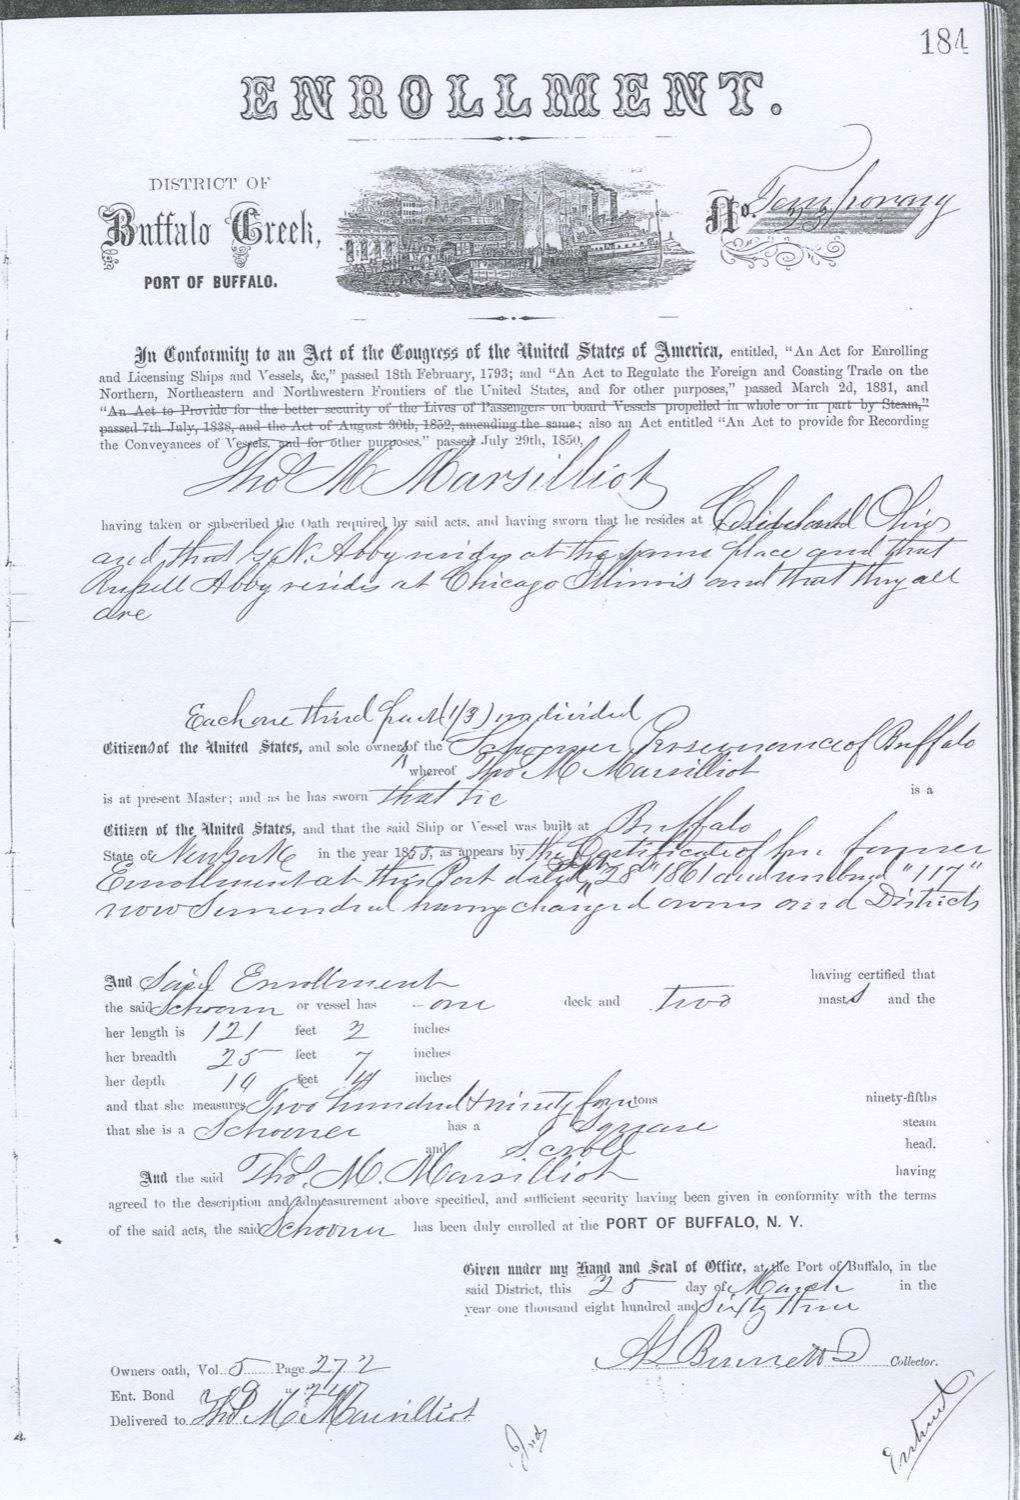 184
ENROLLMENT.
DISTRICT OF
Buffalo Creek,
PORT OF BUFFALO.
No. Temporary
In Conformity to an Act of the Congress of the United States of America, entitled, “An Act for Enrolling
and Licensing Ships and Vessels, &c,” passed 18th February, 1793; and “An Act to Regulate the Foreign and Coasting Trade on the
Northern, Northeastern and Northwestern Frontiers of the United States, and for other purposes,” passed March 2d, 1831, and
“An Act to Provide for the better security of the Lives of Passengers on board Vessels propelled in whole or in part by Steam,”
passed 7th July, 1838, and the Act of August 30th, 1852, amending the same; also an Act entitled “An Act to provide for Recording
the Conveyances of Vessels, and for other purposes,” passed July 29th, 1850,
Thos M Marsilliot
having taken or subscribed the Oath required by said acts, and having sworn that he resides at Cleveland Ohio
and that G. N. Abby resides at the same place and that
Russell Abby resides at Chicago Illinois and that they all
are
Each one third part (1/3) undivided
Citizens of the United States, and sole owners of the Schooner Perseverance of Buffalo
whereof Thos M Marsilliot
is at present Master; and as he has sworn that he is a
Citizen of the United States, and that the said Ship or Vessel was built at Buffalo
State of New York in the year 1855, as appears by the Certificate of her former
Enrollment at this Port dated "28" 1861 and numbered "117"
now Surrendered having changed owners and Districts
And Said Enrollment having certified that
the said Schooner or vessel has one deck and two masts and the
her length is 121 feet 2 inches
her breadth 25 feet 7 inches
her depth feet inches
and that she measures Two hundred & ninety four tons ninety-fifths
that she is a Schooner has a Square steam
and Scroll head.
And the said Thos. M. Marsilliot having
agreed to the description and admeasurement above specified, and sufficient security having been given in conformity with the terms
of the said acts, the said Schooner has been duly enrolled at the PORT OF BUFFALO, N. Y.
Given under my Hand and Seal of Office, at the Port of Buffalo, in the
said District, this 25 day of March in the
year one thousand eight hundred and Sixty three
Collector.
Owners oath, Vol. 5 Page 272
Ent. Bond
Delivered to Thos M. Marsilliot